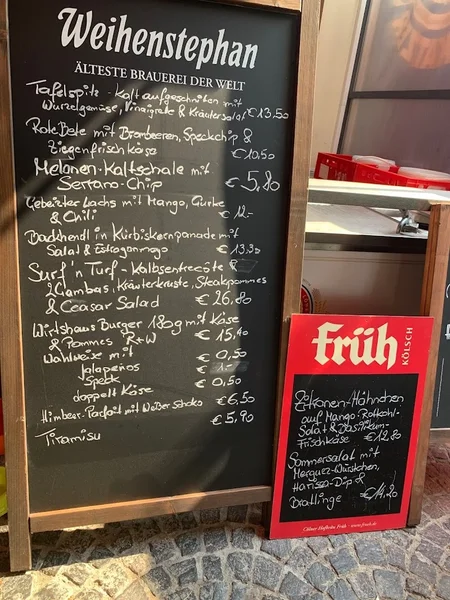 Weihenstephan
ÄLTESTE BRAUEREI DER WELT
Tafelspitz - kalt aufgeschnitten mit
Wurzelgemüse, Vinaigrette & Kräutersalat €13,50
Rote Bete mit Brombeeren, Speckchip &
Ziegenfrischkäse €10,50
Melonen-Kaltschale mit
Serrano-Chip €5,80
Gebeizter Lachs mit Mango, Gurke
& Chili €12.-
Backhendl in Kürbiskernpanade mit
Salat & Estragonmayo €13,90
Surf'n Turf - Kalbsentrecôte &
& Gambas, Kräuterkruste, Steakpommes
& Ceasar Salad €26,80
Wirtshaus Burger 180g mit Käse
& Pommes R+W €15,40
Wahlweise mit €0,50
Jalapeños €1.-
Speck €0,50
doppelt Käse €6,50
Himbeer-Parfait mit Weißer Schoko €5,90
Tiramisu
früh
KÖLSCH
Zitronen-Hähnchen
auf Mango-Rotkohl-
Salat & Basilikum-
Frischkäse €12,80
Sommersalat mit
Merguez-Würstchen,
Harissa-Dip &
Bratlinge €14,20
Cölner Hofbräu Früh · www.frueh.de